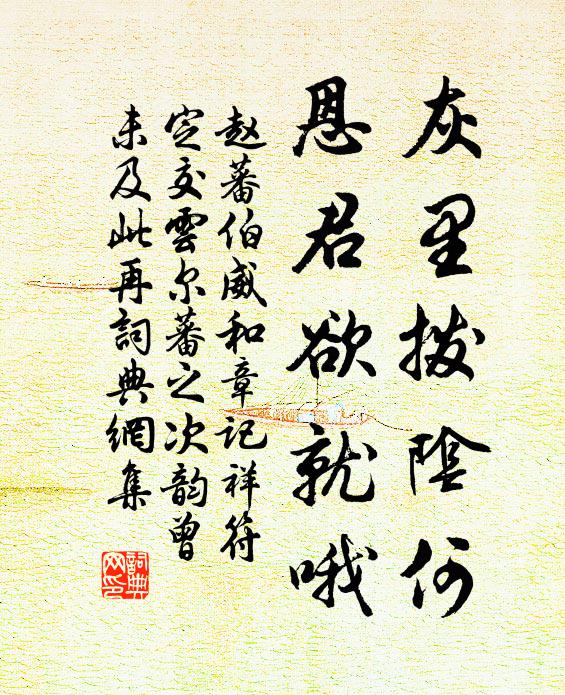 灰里拨阴何
恩君欲就哦
赵蕃伯威和章记祥符
定交云尔蕃之次韵曾
未及此再詞典網集
詞典
网印